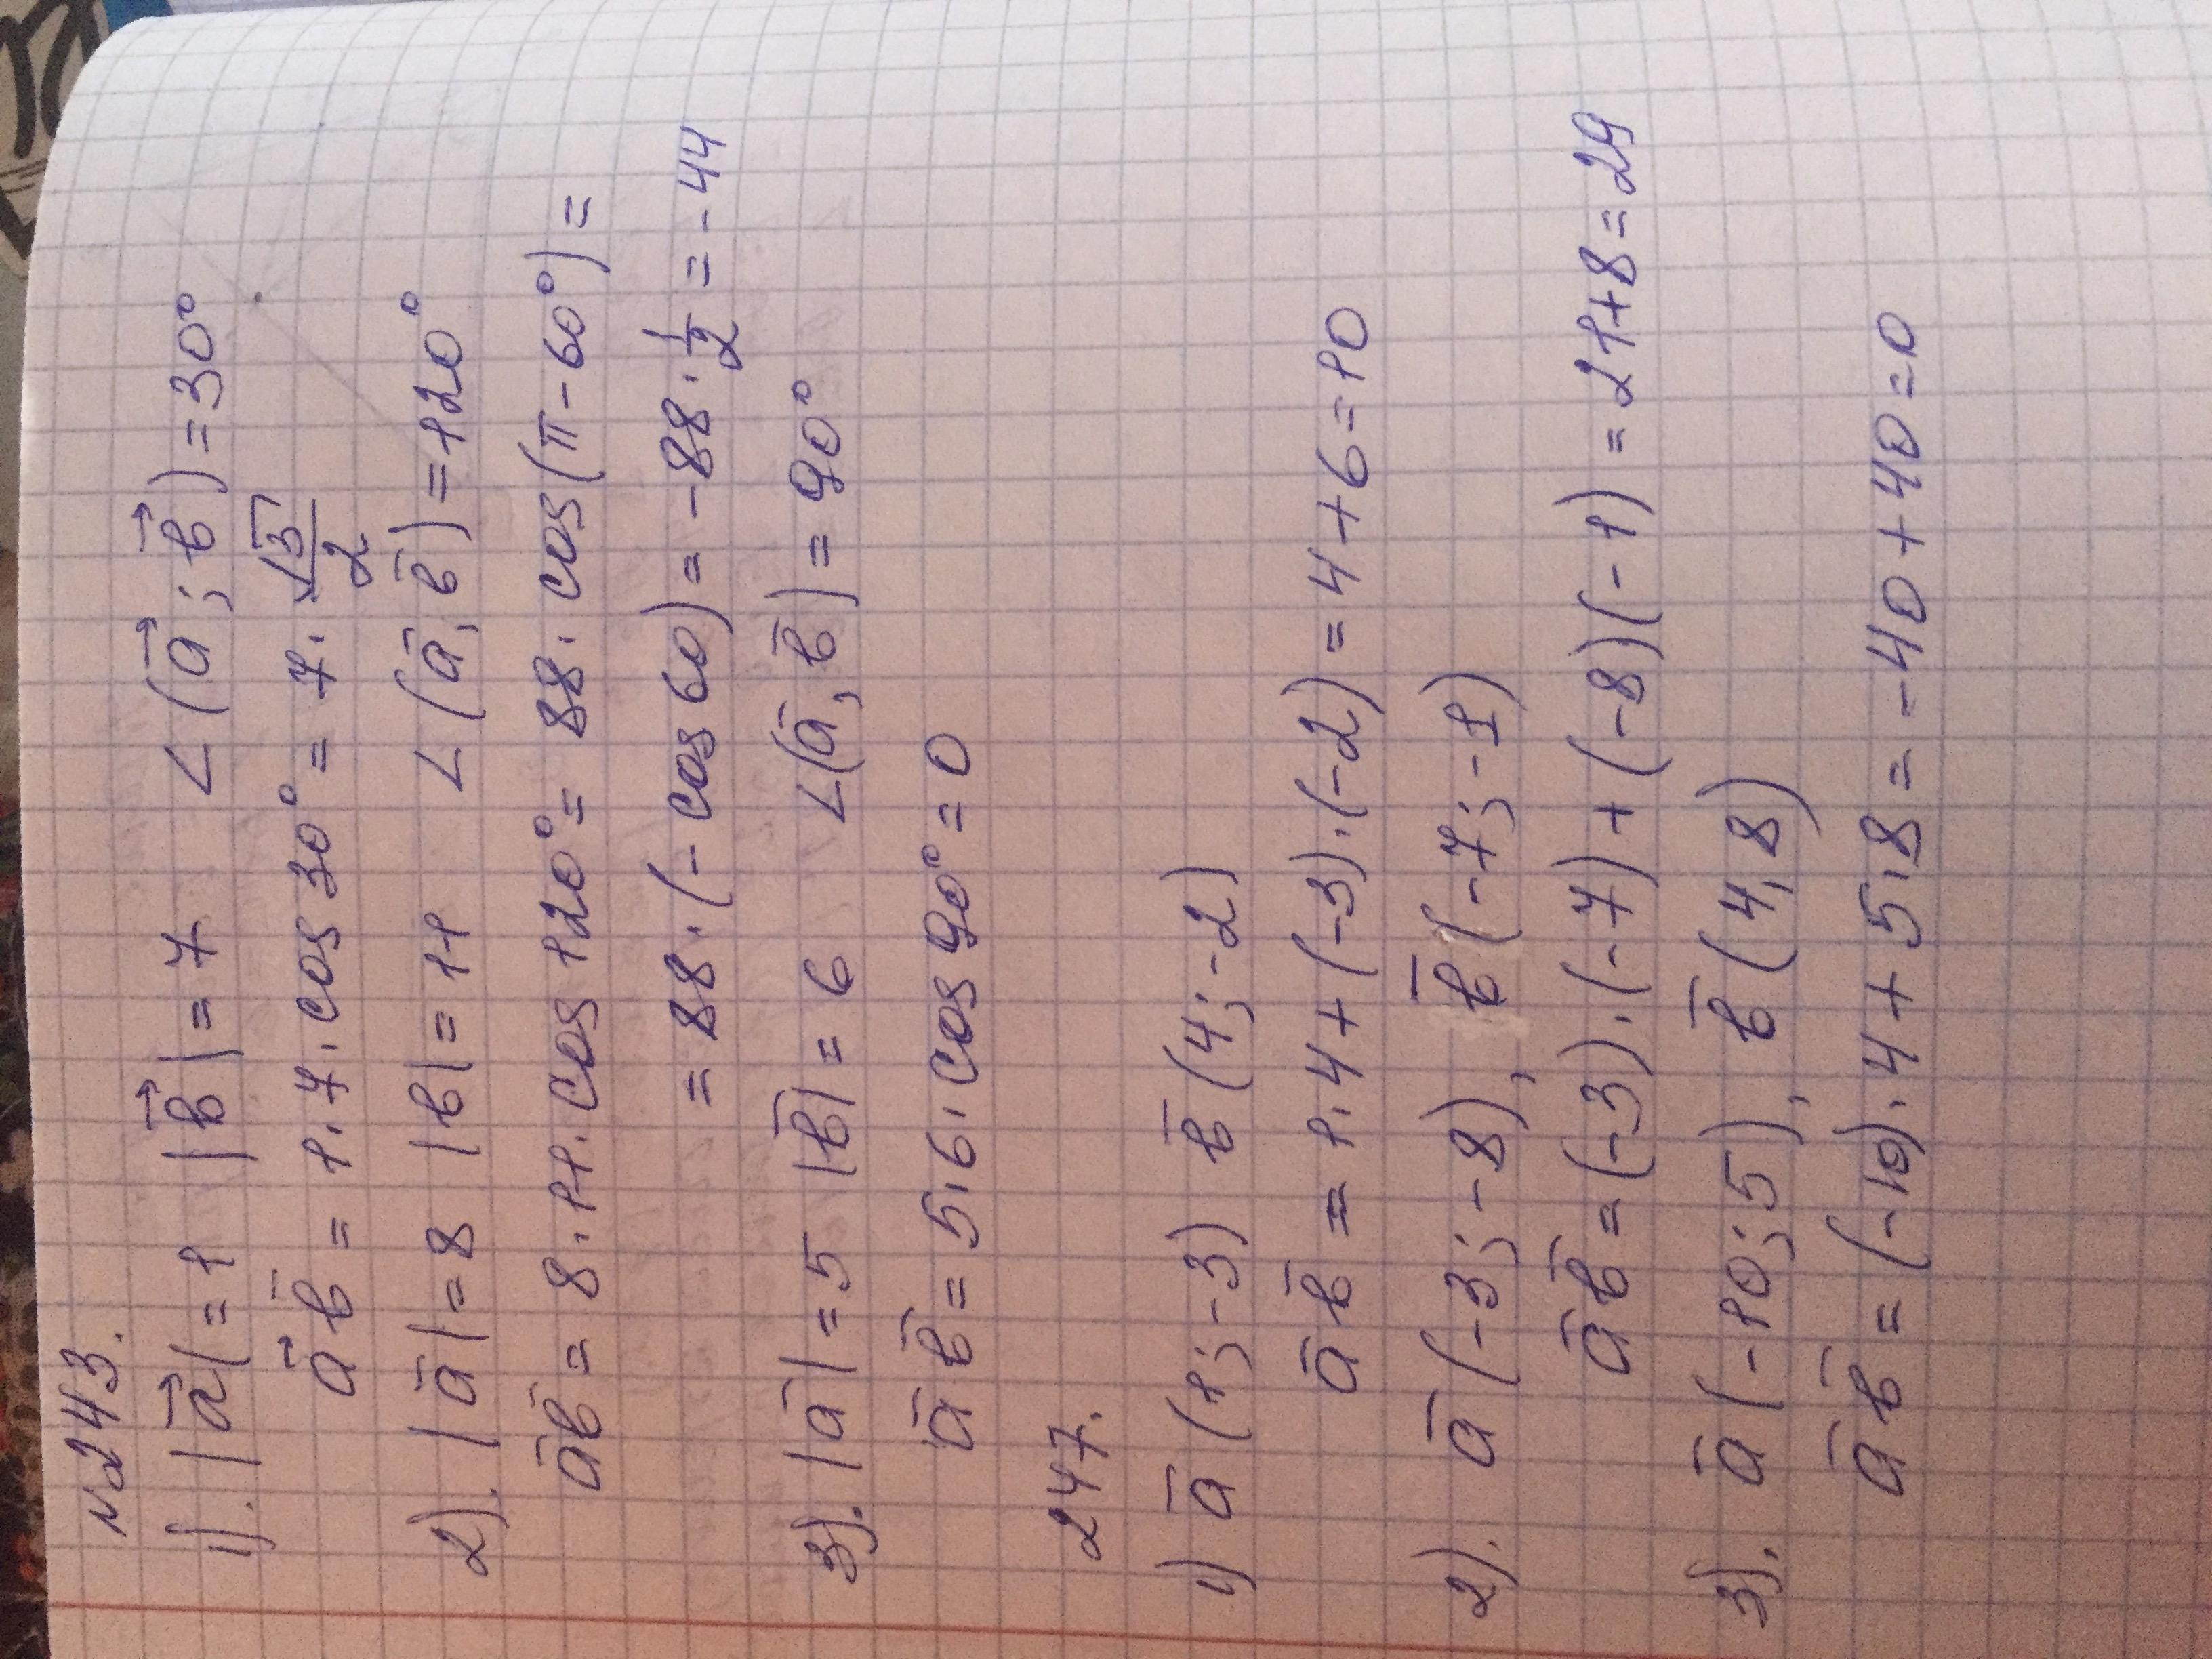 N243.
1). |a⃗|=1 |b⃗|=7 ∠(a⃗; b⃗)=30°
a⃗b̄ = 1·7·cos30° = 7·√3/2
2). |ā|=8 |b|=11 ∠(ā; b̄)=120°
āb̄ = 8·11·cos120° = 88·cos(π-60°)=
= 88·(-cos60)= -88·1/2 = -44
3). |ā|=5 |b̄|=6 ∠(ā, b̄)=90°
āb̄ = 5·6·cos90°=0
247.
1) ā(1; -3) b̄(4; -2)
āb̄ = 1·4+(-3)·(-2)=4+6=10
2). ā(-3; -8), b̄(-7; -1)
āb̄ = (-3)·(-7)+(-8)(-1)=21+8=29
3). ā(-10; 5), b̄(4, 8)
āb̄ = (-10)·4+5·8=-40+40=0